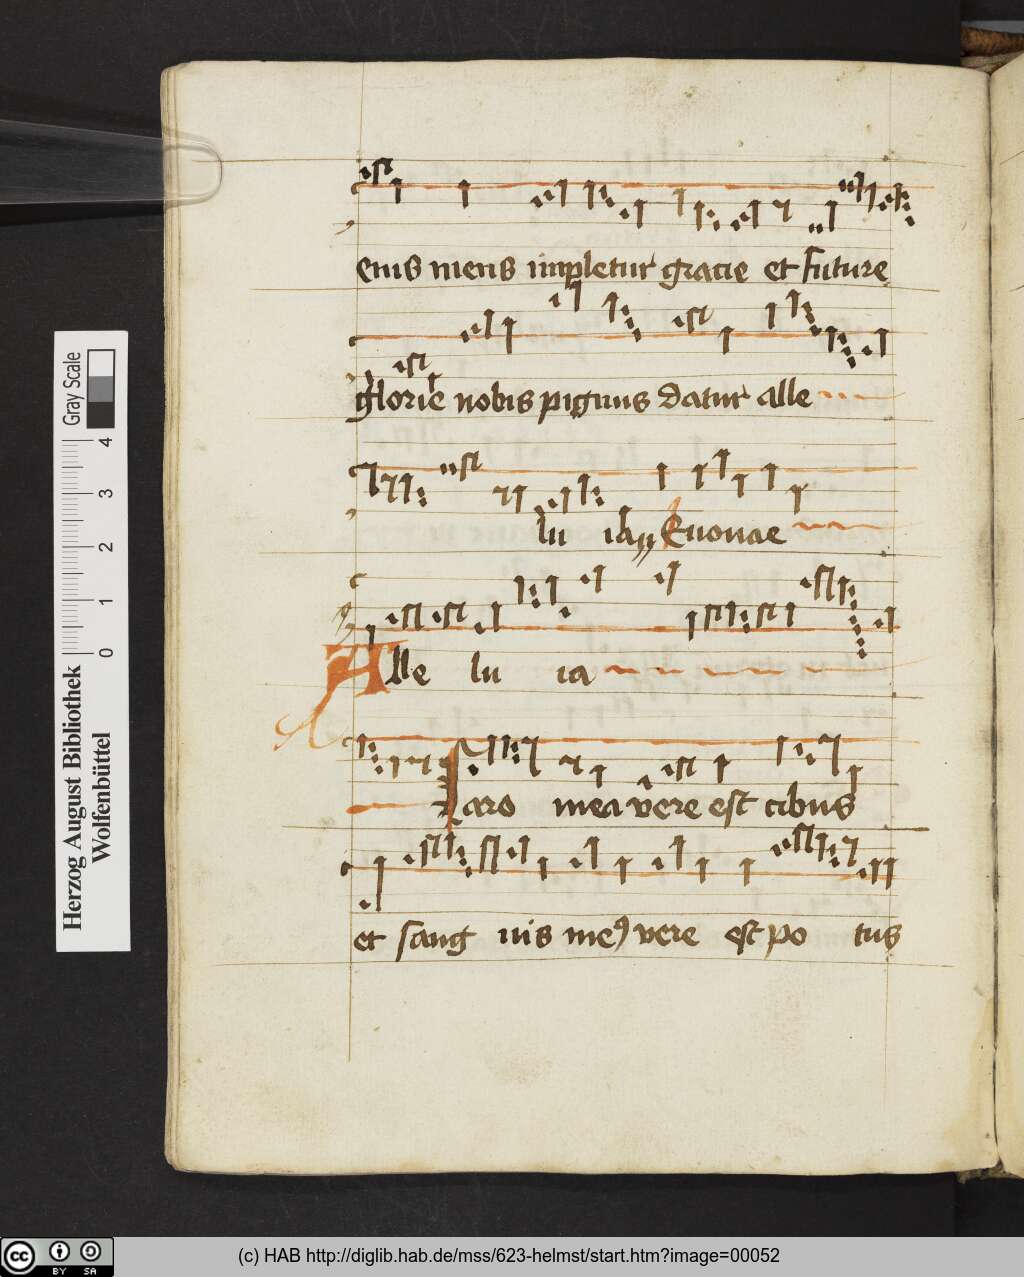 eius mens impletur gracie et future
glorie nobis pignus datur alle
lu ia Euouae
Alle lu ia
Caro mea vere est cibus
et sang uis me9 vere est po tus
Gray Scale
0 1 2 3 4
Herzog August Bibliothek
Wolfenbüttel
cc BY SA
(c) HAB http://diglib.hab.de/mss/623-helmst/start.htm?image=00052